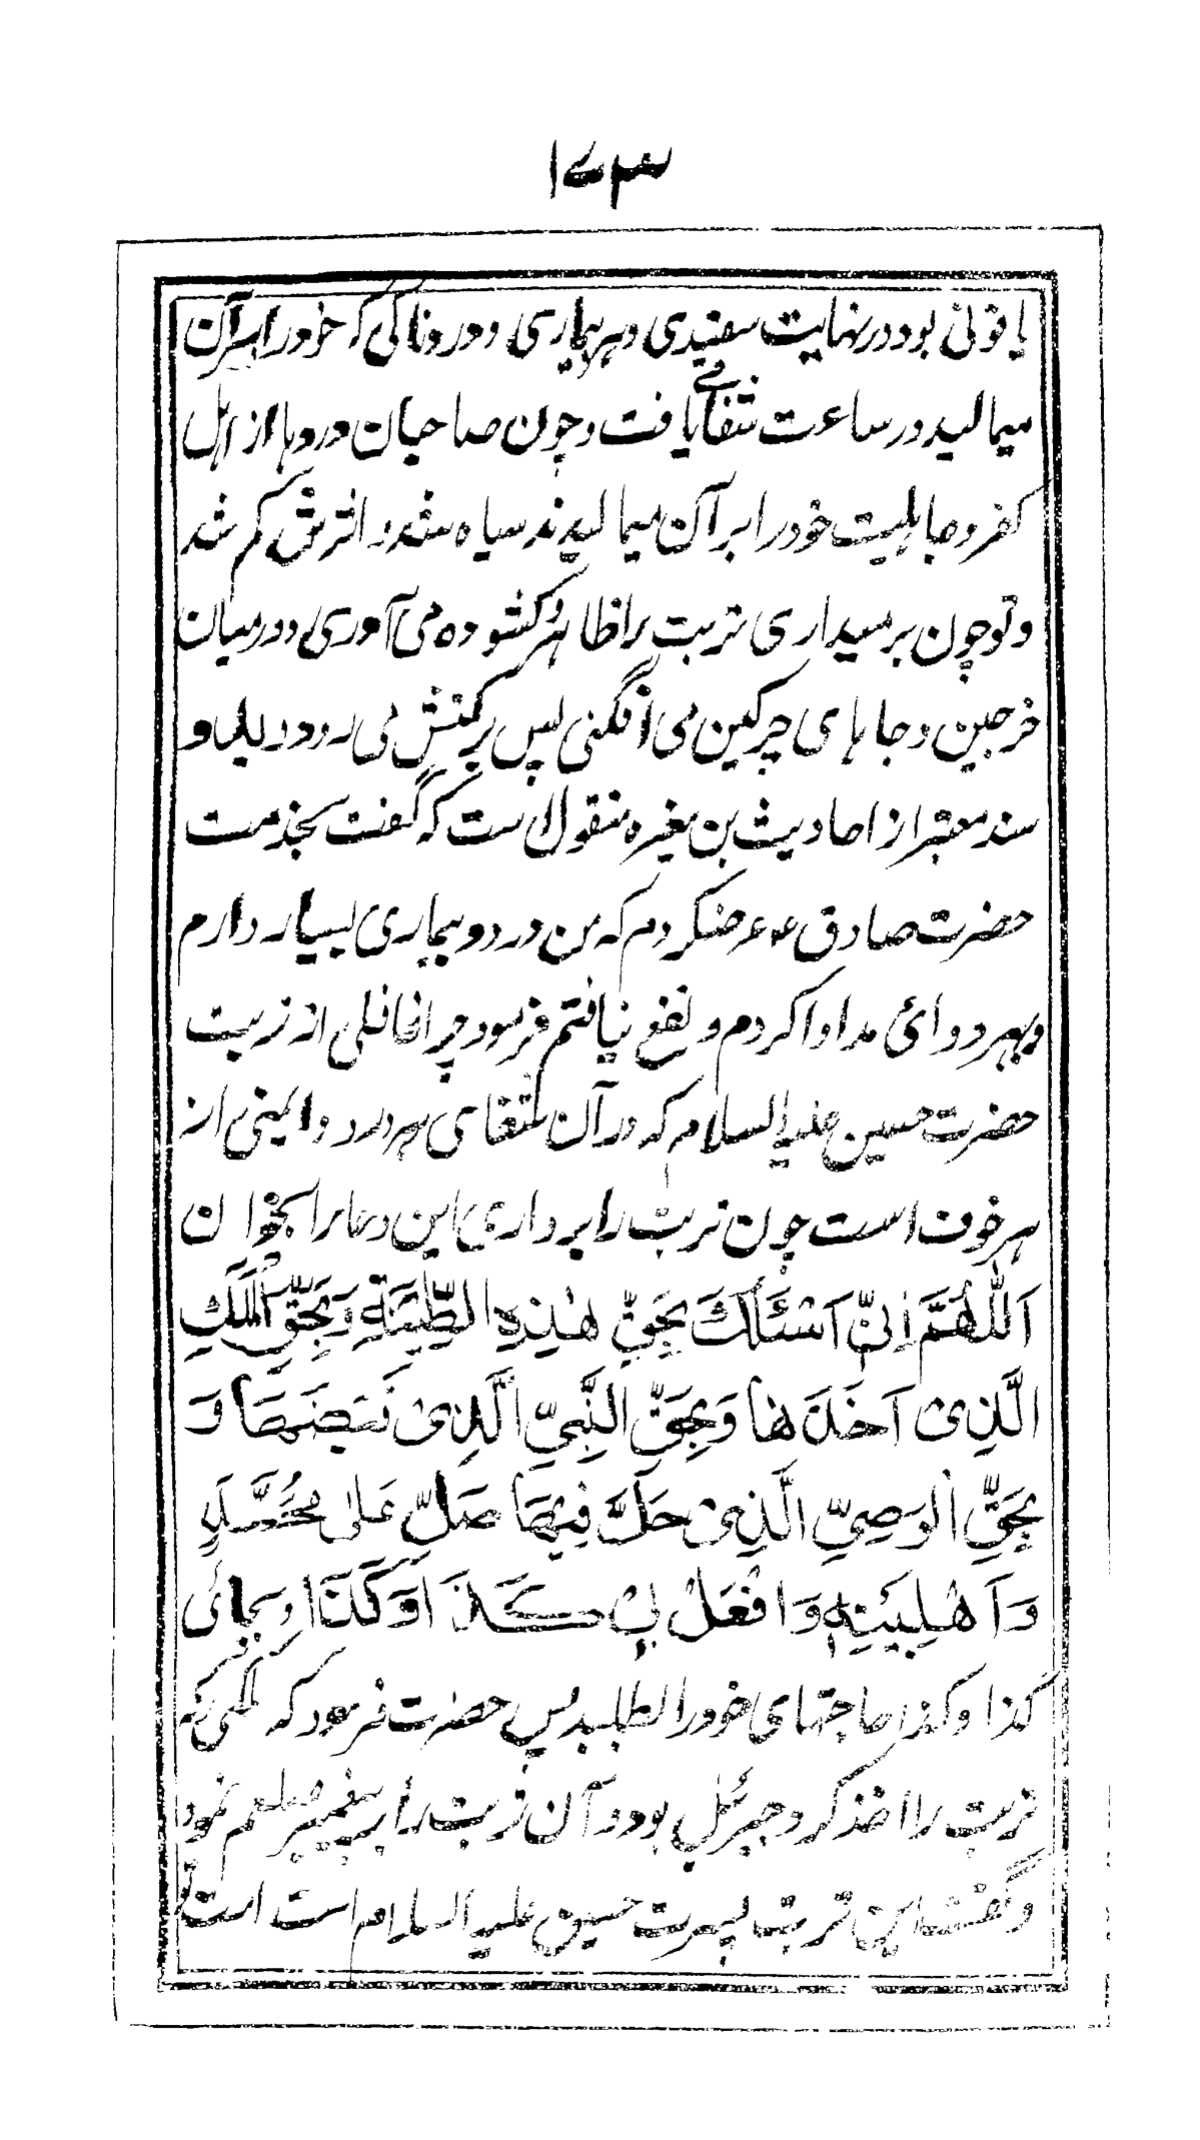 ۱۷۳
یاقوتی بود در نهایت سفیدی و هر بیماری و دردناکی که خود را بر آن
میمالید در ساعت شفا می یافت و چون صاحبان دردها از اهل
کفر و جاهلیت خود را بر آن میمالیدند سیاه شد و اثرش کم شد
و تو چون برمیداری تربت را ظاهر و کشوده می آوری و در میان
خرجین و جاهای چرکین می افگنی پس برکتش می رود و
سند معتبر از احادیث بن مغیره منقول است که گفت بخدمت
حضرت صادق ع عرضکردم که من درد و بیماری بسیار دارم
و بهر دوائی مداوا کردم و نفع نیافتم فرمود چرا غافلی از تربت
حضرت حسین علیه السلام که در آن شفای هر درد و ایمنی از
هر خوف است چون تربت را برداری این دعا را بخوان
اَللّٰهُمَّ اِنِّیْ اَسْئَلُكَ بِحَقِّ هٰذِهِ الطِّیْنَةِ وَبِحَقِّ الْمَلَكِ
الَّذِیْ اَخَذَهَا وَبِحَقِّ النَّبِیِّ الَّذِیْ قَبَضَهَا وَ
بِحَقِّ الْوَصِیِّ الَّذِیْ حَلَّ فِیْهَا صَلِّ عَلٰی مُحَمَّدٍ
وَاَهْلِبَیْتِهٖ وَافْعَلْ بِیْ كَذَا وَكَذَا و بجائی
کذا و کذا حاجتهای خود را بطلبد پس حضرت فرمود که ملکی که
تربت را اخذ کرد جبرئیل بود و آن تربت را به پیغمبر صلعم نمود
و گفت این تربت پسرت حسین علیه السلام است